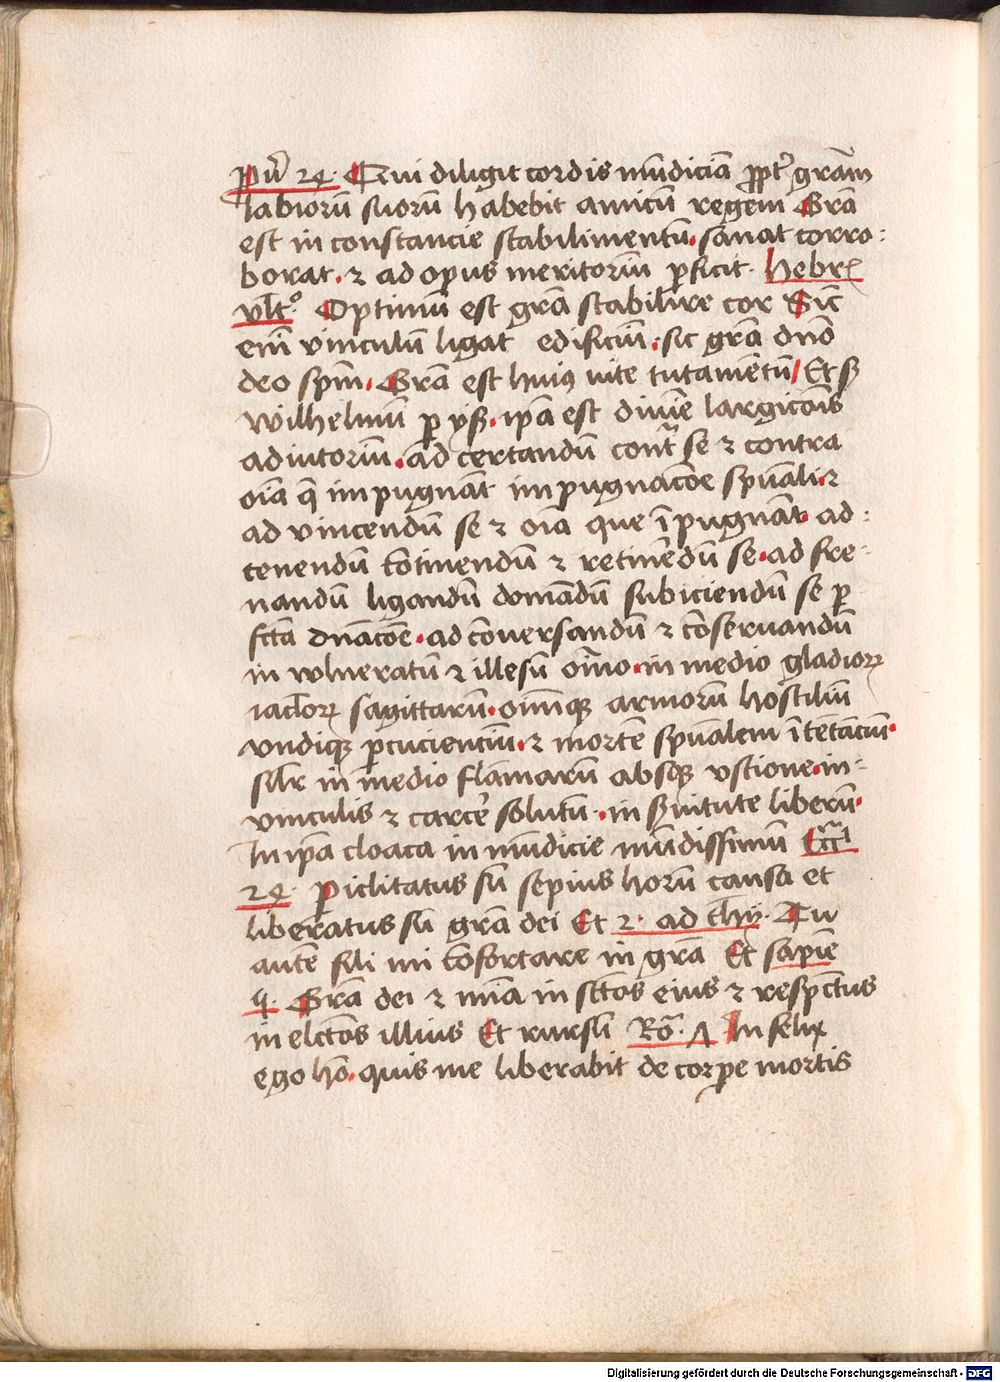 Pu͛ 24. Qui diligit cordis mūdiciā ꝓpt͛ grām
labiorū suorū habebit amicū regem Grā
est in constancie stabilimentū. sanat corro:
borat. ⁊ ad opus meritoriū ꝑficit. hebre
vlt͛º. Optimū est grā stabilire cor Sic̄
em̄ vinculū ligat edificiū. sic grā dn̄o
deo spm̄. Grā est huiꝰ vite tutamētū Et ẜ
wilhelmū ꝑ yß. ip̄a est diuīe largicōis
adiutoriū. ad certandū cont͛ se ⁊ contra
oīa q̄ impugnāt impugnacōe spūali. ⁊
ad vincendū se ⁊ oīa que īpugnāt. ad:
tenendū cōtinendū ⁊ retinēdū se. ad fre-
nandū ligandū domādū subiciendū se ꝑ
fctā dn̄acōe. ad cōuersandū ⁊ cōseruandū
in vlneratū ⁊ illesū oīno. in medio gladioꝝ
iaculoꝝ sagittarū. oīmqꝫ armorū hostiliū
vndiqꝫ ꝑcucienciū. ⁊ mortē spūalem ītētāciū.
silr̄ in medio flāmarū absqꝫ vstione. in-
vinculis ⁊ carcē solutū. in ẜuitute liberū.
In ip̄a cloaca in mūdicie mūdissimū Ecc̄i
24. ꝑiclitatus sū sepius horū causa et
liberatus sū grā dei Et 2. ad thy. Tu
autē fili mi cōfortare in grā Et sapiē
4. Grā dei ⁊ mīa in sctōs eius ⁊ respctūs
in elctōs illius Et rursū Ro. 7 In felix
ego hō. quis me liberabit de corpe mortis
Digitalisierung gefördert durch die Deutsche Forschungsgemeinschaft - DFG